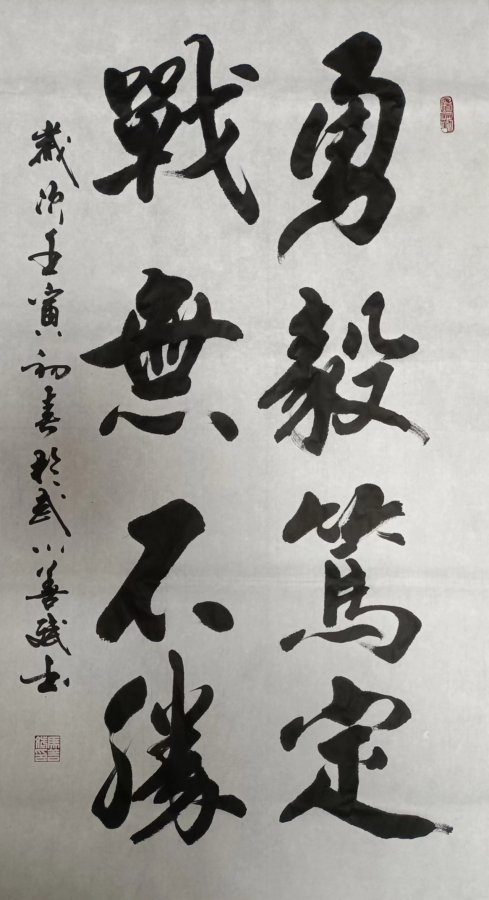 勇毅篤定
戰無不勝
歲次壬寅初春於武川善斌书